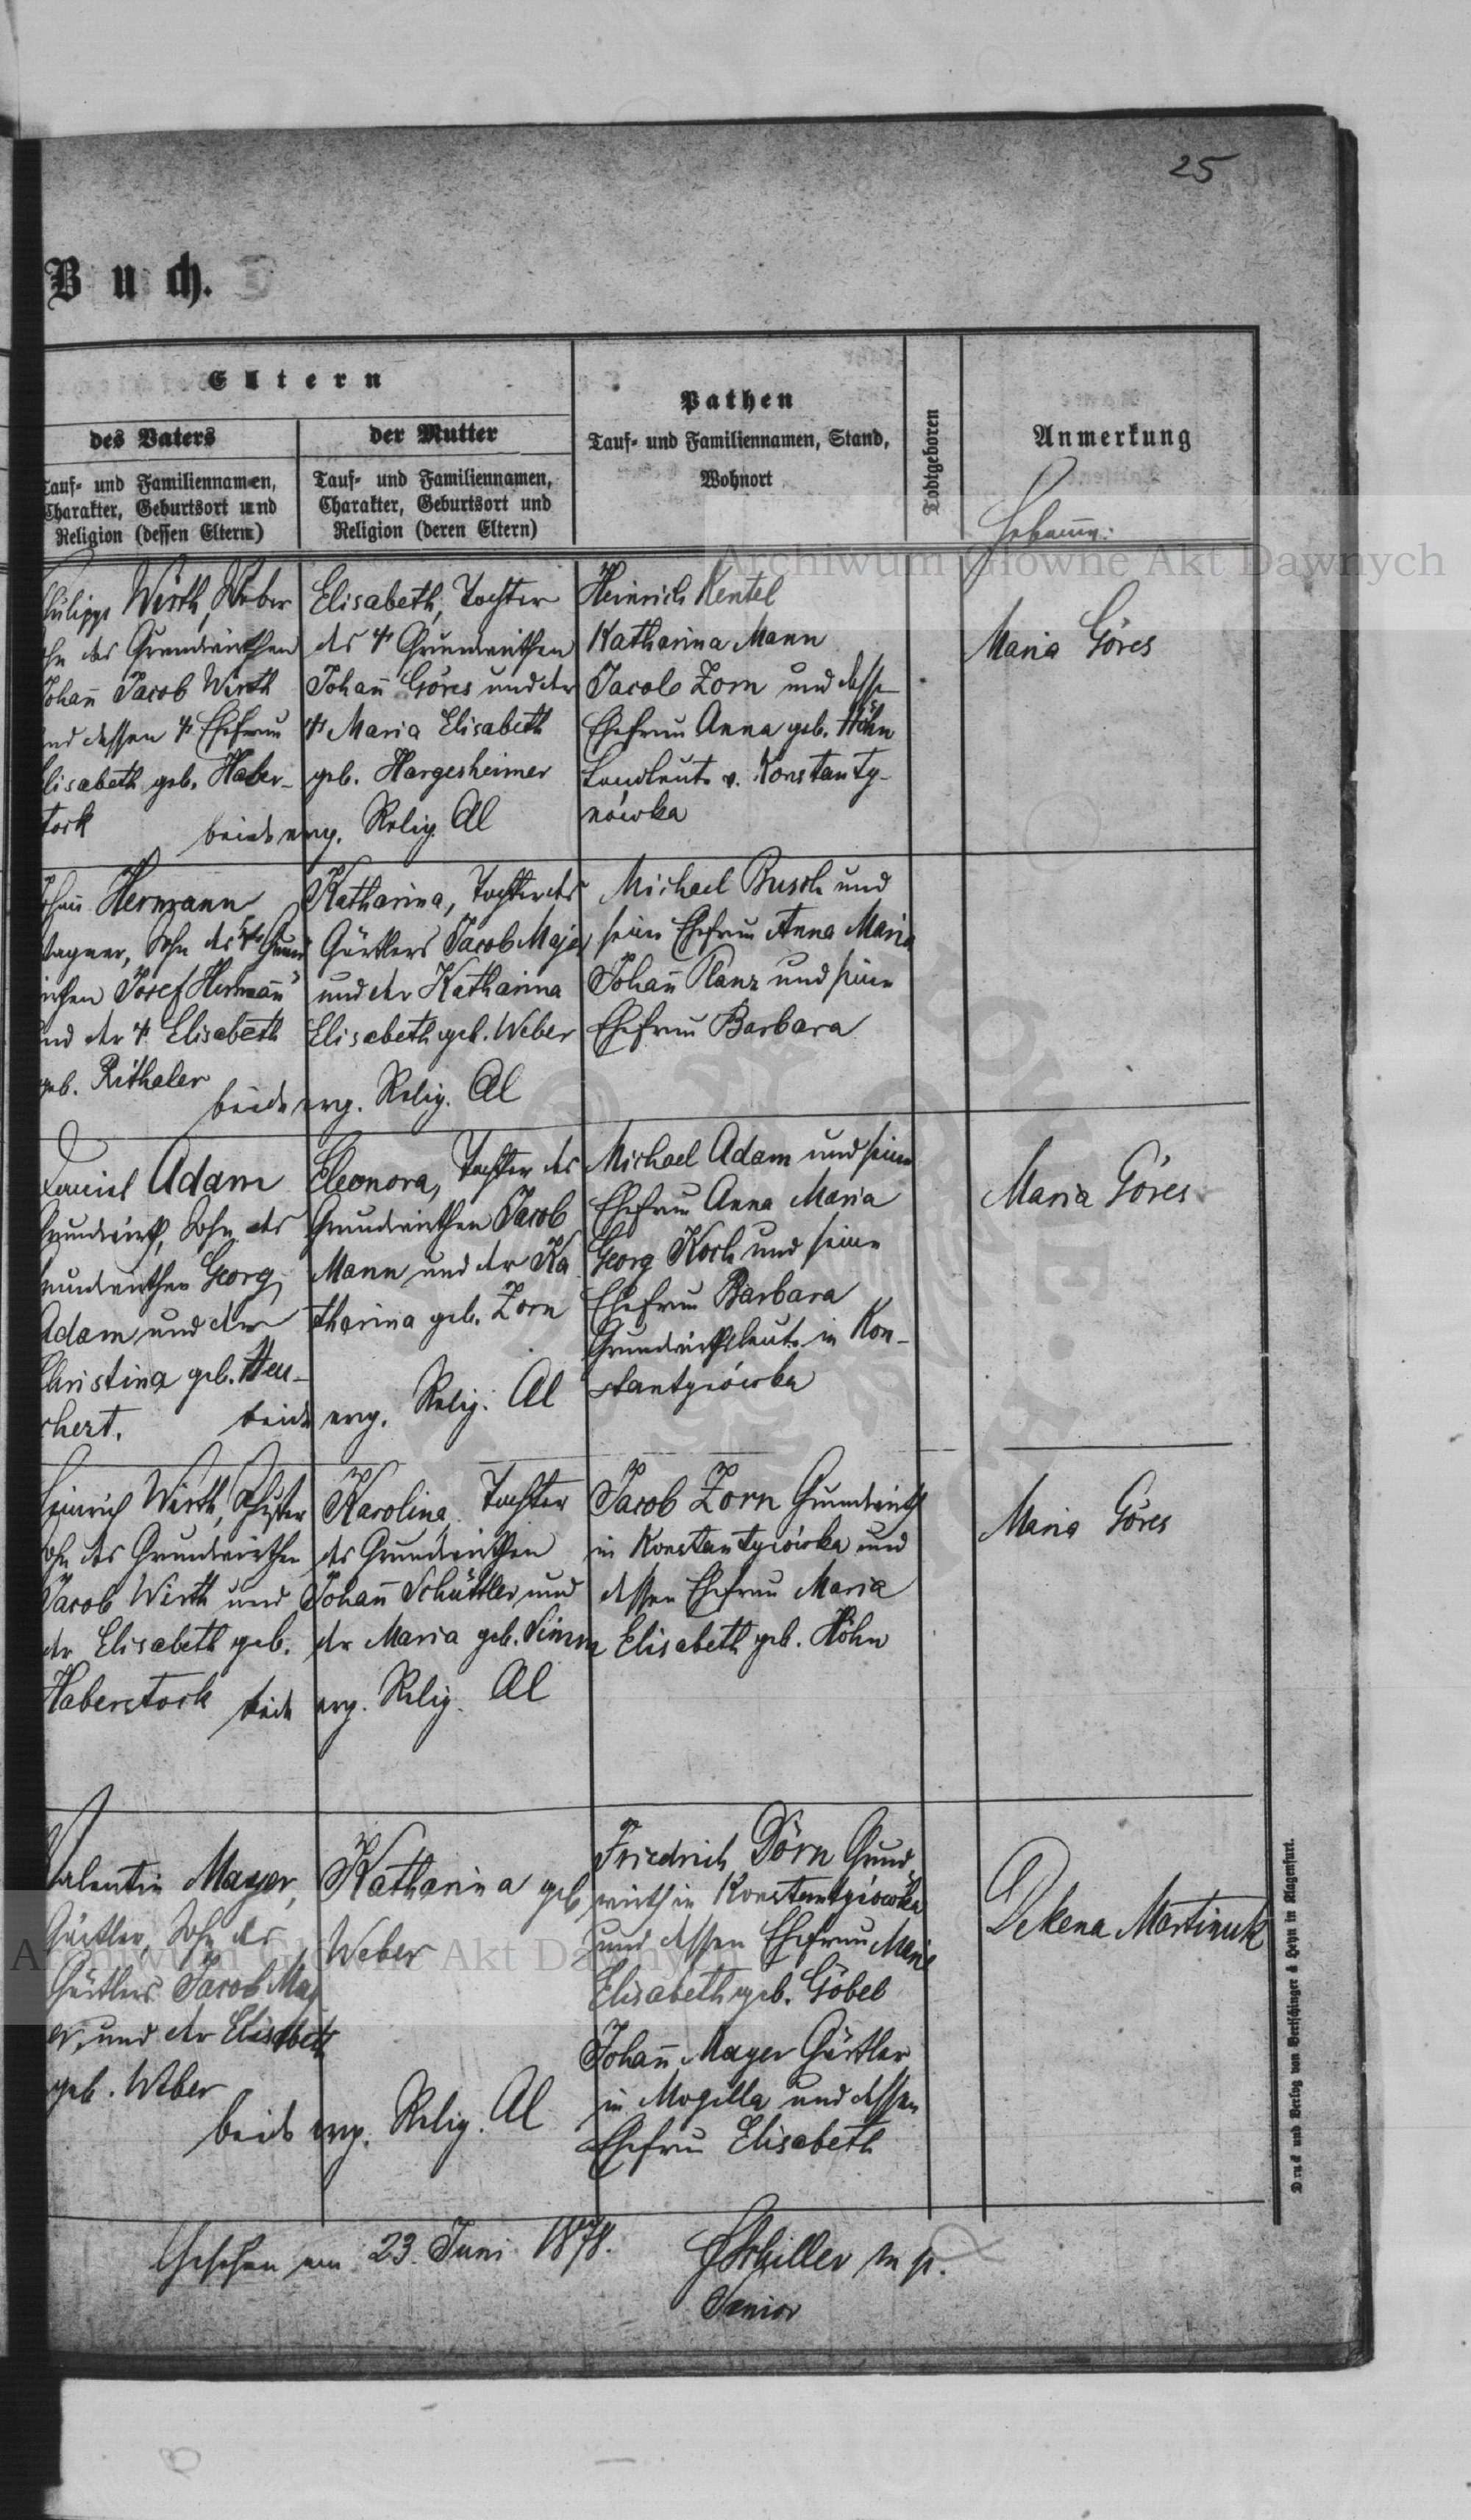 25
Buch.
Eltern
des Vaters
Tauf- und Familiennamen,
Charakter, Geburtsort und
Religion (dessen Eltern)
der Mutter
Tauf- und Familiennamen,
Charakter, Geburtsort und
Religion (deren Eltern)
Pathen
Tauf- und Familiennamen, Stand,
Wohnort
Todtgeboren
Anmerkung
Hebamme:
Philipp Wirth, Weber
Sohn des Grundwirthen
Johan̄ Jacob Wirth
und dessen † Ehefrau
Elisabeth geb. Haber-
stock
Elisabeth, Tochter
des † Grundwirthen
Johan̄ Göres und der
† Maria Elisabeth
geb. Hargesheimer
beide evg. Relig. Al
Heinrich Kentel
Katharina Mann
Jacob Zorn und dessen
Ehefrau Anna geb. Höhn
Landleute v. Konstanty-
nówka
Maria Göres
Johan̄ Hermann,
Wagner, Sohn des † Grund
wirthen Josef Herman̄
und der † Elisabeth
geb. Rithaler
Katharina, Tochter des
Gärtlers Jacob Majer
und der Katharina
Elisabeth geb. Weber
beide evg. Relig. Al
Michael Busch und
seine Ehefrau Anna Maria
Johan̄ Planz und seine
Ehefrau Barbara
Daniel Adam
Grundwirth, Sohn des
Grundwirthen Georg
Adam und der
Christina geb. Heu-
chert.
Eleonora, Tochter des
Grundwirthen Jacob
Mann und der Ka
tharina geb. Zorn
beide evg. Relig. Al
Michael Adam und seine
Ehefrau Anna Maria
Georg Koch und seine
Ehefrau Barbara
Grundwirthsleute in Kon-
stantyiówka
Maria Göres
Heinrich Wirth, Schuster
Sohn des Grundwirthen
Jacob Wirth und
der Elisabeth geb.
Haberstock
Karolina, Tochter
des Grundwirthen
Johan̄ Schüttler und
der Maria geb. Simm
beide evg. Relig. Al
Jacob Zorn Grundwirth
in Konstantyiówka und
dessen Ehefrau Maria
Elisabeth geb. Höhn
Maria Göres
Valentin Mayer,
Gärtler, Sohn des
Gärtlers Jacob May
er, und der Elisabeth
geb. Weber
Katharina geb
Weber
beide evg. Relig. Al
Friedrich Dörn Grund
wirth in Konstantyiówka
und dessen Ehefrau Marie
Elisabeth geb. Göbel
Johan̄ Mayer Gärtler
in Mogilla und dessen
Ehefrau Elisabeth
Dekena Martinuk
Gesehen am 23. Juni 1878.
Schiller m p.
Senior
Druck und Verlag von Bertschinger & Heyn in Klagenfurt.
Archiwum Główne Akt Dawnych
Archiwum Główne Akt Dawnych